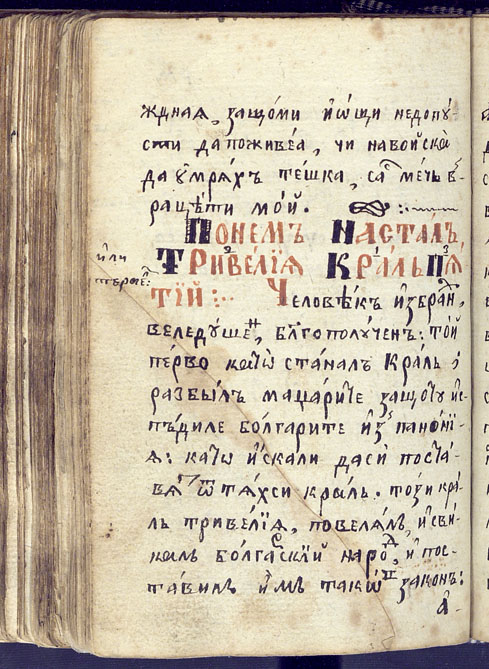 ждная, защоми и҆ѡ҆щи недопꙋ-
сти да поживеа, чи на войска
да ꙋ҆мрях҄ъ те́шка, са мечь в҄-
раще́ти мой.
Понемъ Насталъ
Тривелїя Краль Пя
тїй: Человѣкъ и҆збран,
и҆ли
веледꙋшен, бл҃гополꙋчен: той
пе́рво като̀ станалъ Краль;
разбылъ маџарите защото и҆с-
пъдиле болгарите и҆з панонї-
я: като и҆скали да си поста-
вят ѿ тях си краль. този кра-
ль тривелїя, повелял, и҆ сви-
кал болгарскїй народ, и҆ пос-
тавил и҆м такѡ҆в закон:
а҃